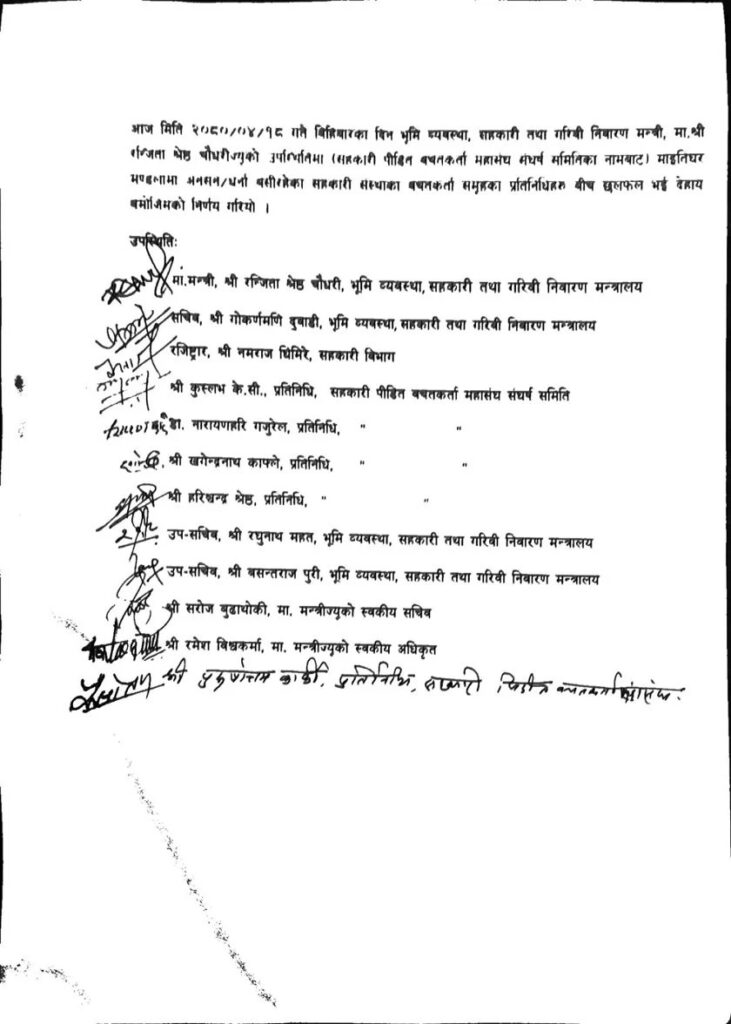 आज मिति २०८०/०४/१८ गते बिहिबारका दिन भूमि व्यवस्था, सहकारी तथा गरिवी निवारण मन्त्री, मा.श्री
रन्जिता श्रेष्ठ चौधरीज्युको उपस्थितिमा (सहकारी पीडित बचतकर्ता महासंघ संघर्ष समितिका नामबाट) माइतिघर
मण्डलामा अनसन/धर्ना बसीरहेका सहकारी संस्थाका बचतकर्ता समुहका प्रतिनिधिहरु बीच छुलफल भई देहाय
बमोजिमको निर्णय गरियो ।
उपस्थिति:
मा.मन्त्री, श्री रन्जिता श्रेष्ठ चौधरी, भूमि व्यवस्था, सहकारी तथा गरिवी निवारण मन्त्रालय
सचिव, श्री गोकर्णमणि दुवाडी, भूमि व्यवस्था, सहकारी तथा गरिवी निवारण मन्त्रालय
रजिष्ट्रार, श्री नमराज घिमिरे, सहकारी विभाग
श्री कुस्लभ के.सी., प्रतिनिधि, सहकारी पीडित बचतकर्ता महासंघ संघर्ष समिति
डा. नारायणहरि गजुरेल, प्रतिनिधि, " "
श्री खगेन्द्रनाथ काफ्ले, प्रतिनिधि, " "
श्री हरिश्चन्द्र श्रेष्ठ, प्रतिनिधि, " "
उप-सचिव, श्री रघुनाथ महत, भूमि व्यवस्था, सहकारी तथा गरिवी निवारण मन्त्रालय
उप-सचिव, श्री बसन्तराज पुरी, भूमि व्यवस्था, सहकारी तथा गरिवी निवारण मन्त्रालय
श्री सरोज बुढाथोकी, मा. मन्त्रीज्युको स्वकीय सचिव
श्री रमेश विश्वकर्मा, मा. मन्त्रीज्युको स्वकीय अधिकृत
श्री पुरुषोत्तम कार्की, प्रतिनिधि, सहकारी पिडीत बचतकर्ता महासंघ.